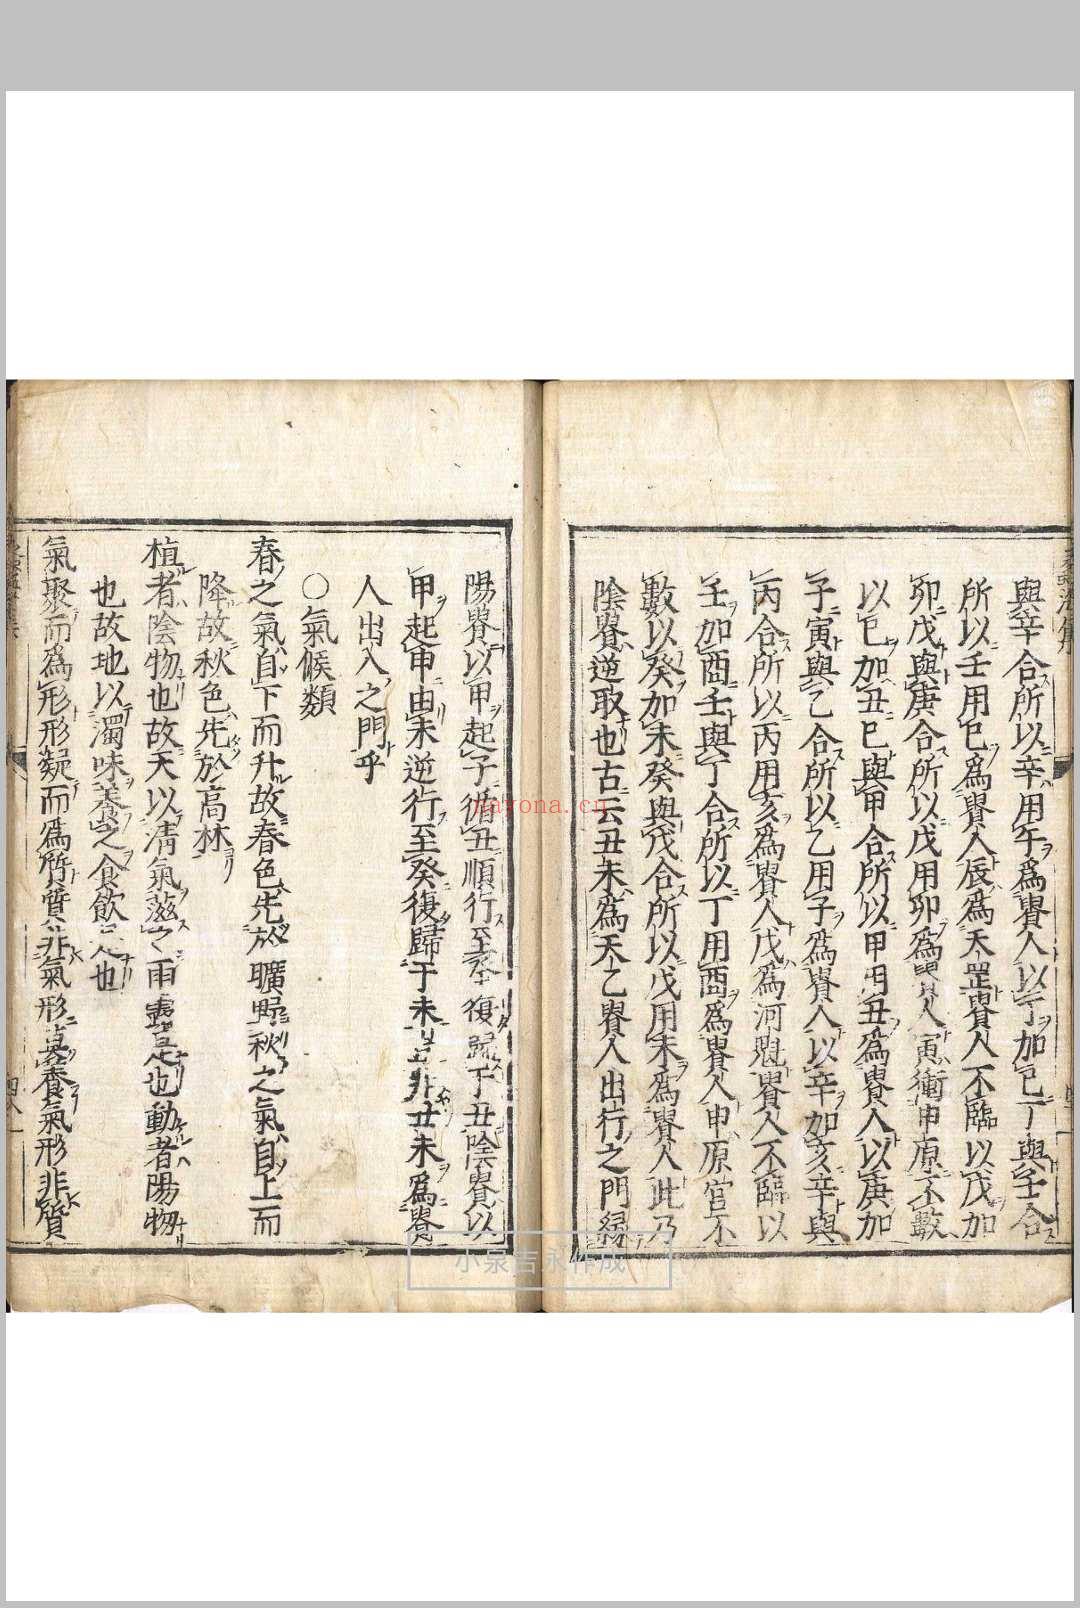 與辛合所以辛用午爲貴人以丁加巳丁與壬合
所以壬用巳爲貴人辰爲天罡貴人不臨以戊加
卯戊與庚合所以戊用卯爲貴人寅衝申原不數
以巳加丑巳與甲合所以甲用丑爲貴人以庚加
子寅與乙合所以乙用子爲貴人以辛加亥辛與
丙合所以丙用亥爲貴人戊爲河魁貴人不臨以
壬加酉壬與丁合所以丁用酉爲貴人申原宮不
數以癸加未癸與戊合所以戊用未爲貴人此乃
陰貴逆取也古云丑未爲天乙貴人出行之門緣
陽貴以甲起子循丑順行至癸復歸于丑陰貴以
甲起申由未逆行至癸復歸于未豈非丑未爲貴
人出入之門乎
○氣候類
春之氣自下而升故春色先於曠野秋之氣自上而
降故秋色先於高林
植者陰物也故天以清氣滋之雨露是也動者陽物
也故地以濁味養之食飲是也
氣聚而爲形形凝而爲質質非氣形養氣形非質
nayona.cn
小泉吉永作成